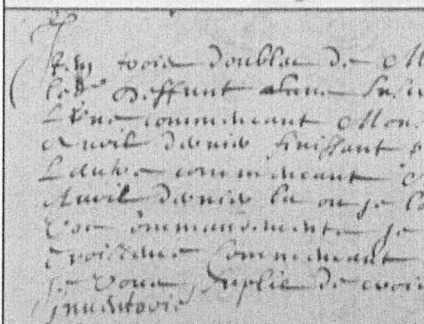 Item trois doubles de M
led. deffunt
L'une commencant Mon
Avril dernier finissant
L'autre commencant
Avril dernier la ou je
Vos commandements je
Croissans commencant
Je vous suplie de croir
Inventorie